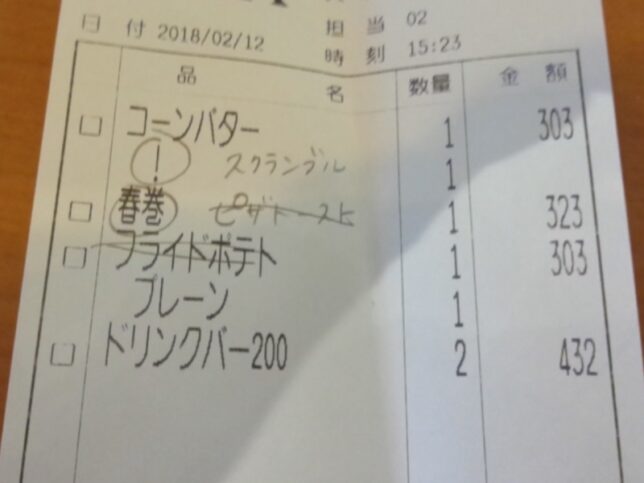 日 付 2018/02/12 担 当 02
時 刻 15:23
品 名 数量 金 額
コーンバター 1 303
! スクランブル 1
春巻 ピザトースト 1 323
フライドポテト 1 303
プレーン 1
ドリンクバー200 2 432